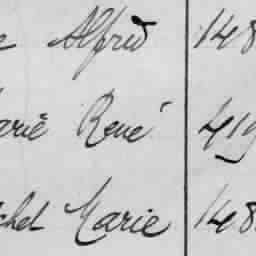 e Alfred 148
arie René 419
chel Marie 148